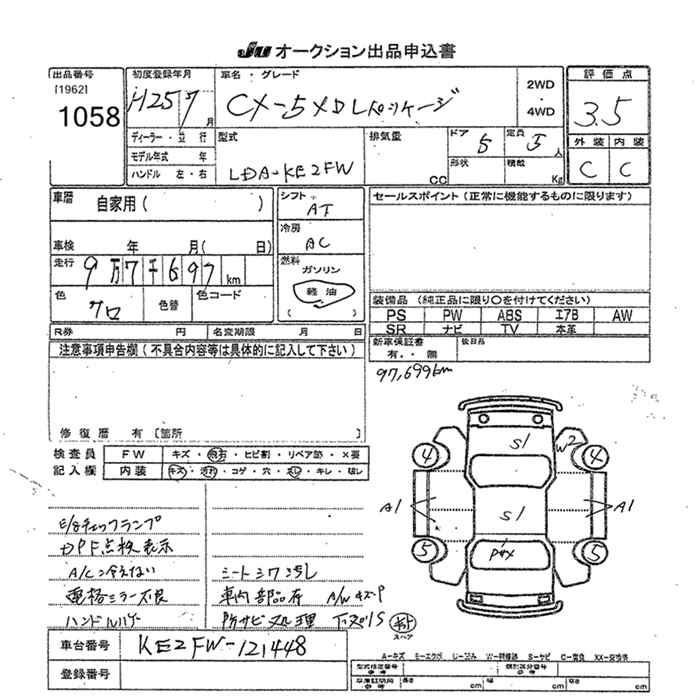 JU オークション出品申込書
出品番号
[1962]
1058
初度登録年月
H25 7月
車名・グレード
CX-5 XDLパッケージ
2WD
・
4WD
評価点
3.5
外装 内装
C C
ディーラー・並行
モデル年式 年
ハンドル 左・右
型式
LDA-KE2FW
排気量
CC
ドア 5
定員 5人
形状
積載 Kg
車歴
自家用( )
車検 年 月( 日)
走行 9万7千697km
色 クロ
色替
色コード
シフト
AT
冷房
AC
燃料
ガソリン
軽油
( )
セールスポイント(正常に機能するものに限ります)
装備品(純正品に限り○を付けてください)
PS PW ABS エアB AW
SR ナビ TV 本革
新車保証書
有・無
後日品
R券 円
名変期限 月 日
注意事項申告欄(不具合内容等は具体的に記入して下さい)
修復歴 有〔箇所
97,699km
検査員
記入欄
FW キズ・飛石・ヒビ割・リペア跡・×要
内装 キズ・汚れ・コゲ・穴・スレ・キレ・破レ
E/gチェックランプ
DPF点検表示
A/C冷えない
電格ミラー不良
ハンドルハゲ
シートシワ汚レ
車内部品有 A/WキズP
防サビ処理 下廻りS
スペア
S1
W2
4 4
A1 A1
S1
5 5
車台番号 KE2FW-121448
登録番号
A-キズ M-エクボ U-凹み W-修理跡 S-サビ C-腐食 XX-交換済
型式指定番号
参考
類別区分番号
参考
車庫証明用
参考
長さ cm
幅 cm
高さ cm